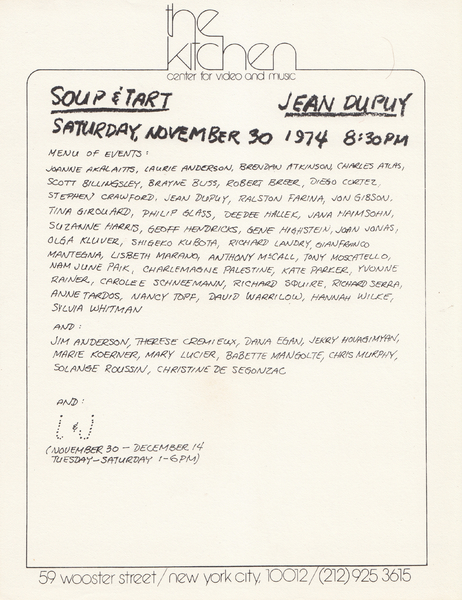 the
kitchen
center for video and music
SOUP & TART JEAN DUPUY
SATURDAY, NOVEMBER 30 1974 8:30PM
MENU OF EVENTS:
JOANNE AKALAITIS, LAURIE ANDERSON, BRENDAN ATKINSON, CHARLES ATLAS,
SCOTT BILLINGSLEY, BRAYNE BLISS, ROBERT BREER, DIEGO CORTEZ,
STEPHEN CRAWFORD, JEAN DUPUY, RALSTON FARINA, JON GIBSON,
TINA GIROUARD, PHILIP GLASS, DEEDEE HALLEK, JANA HAIMSOHN,
SUZANNE HARRIS, GEOFF HENDRICKS, GENE HIGHSTEIN, JOAN JONAS,
OLGA KLUVER, SHIGEKO KUBOTA, RICHARD LANDRY, GIANFRANCO
MANTEGNA, LISBETH MARANO, ANTHONY McCALL, TONY MOSCATELLO,
NAM JUNE PAIK, CHARLEMAGNE PALESTINE, KATE PARKER, YVONNE
RAINER, CAROLEE SCHNEEMANN, RICHARD SQUIRE, RICHARD SERRA,
ANNE TARDOS, NANCY TOPF, DAVID WARRILOW, HANNAH WILKE,
SYLVIA WHITMAN
AND:
JIM ANDERSON, THERESE CREMIEUX, DANA EGAN, JERRY HOVAGIMYAN,
MARIE KOERNER, MARY LUCIER, BABETTE MANGOLTE, CHRIS MURPHY,
SOLANGE ROUSSIN, CHRISTINE DE SEGONZAC
AND:
i & j
(NOVEMBER 30 - DECEMBER 14
TUESDAY-SATURDAY 1-6PM)
59 wooster street/new york city, 10012/(212) 925 3615